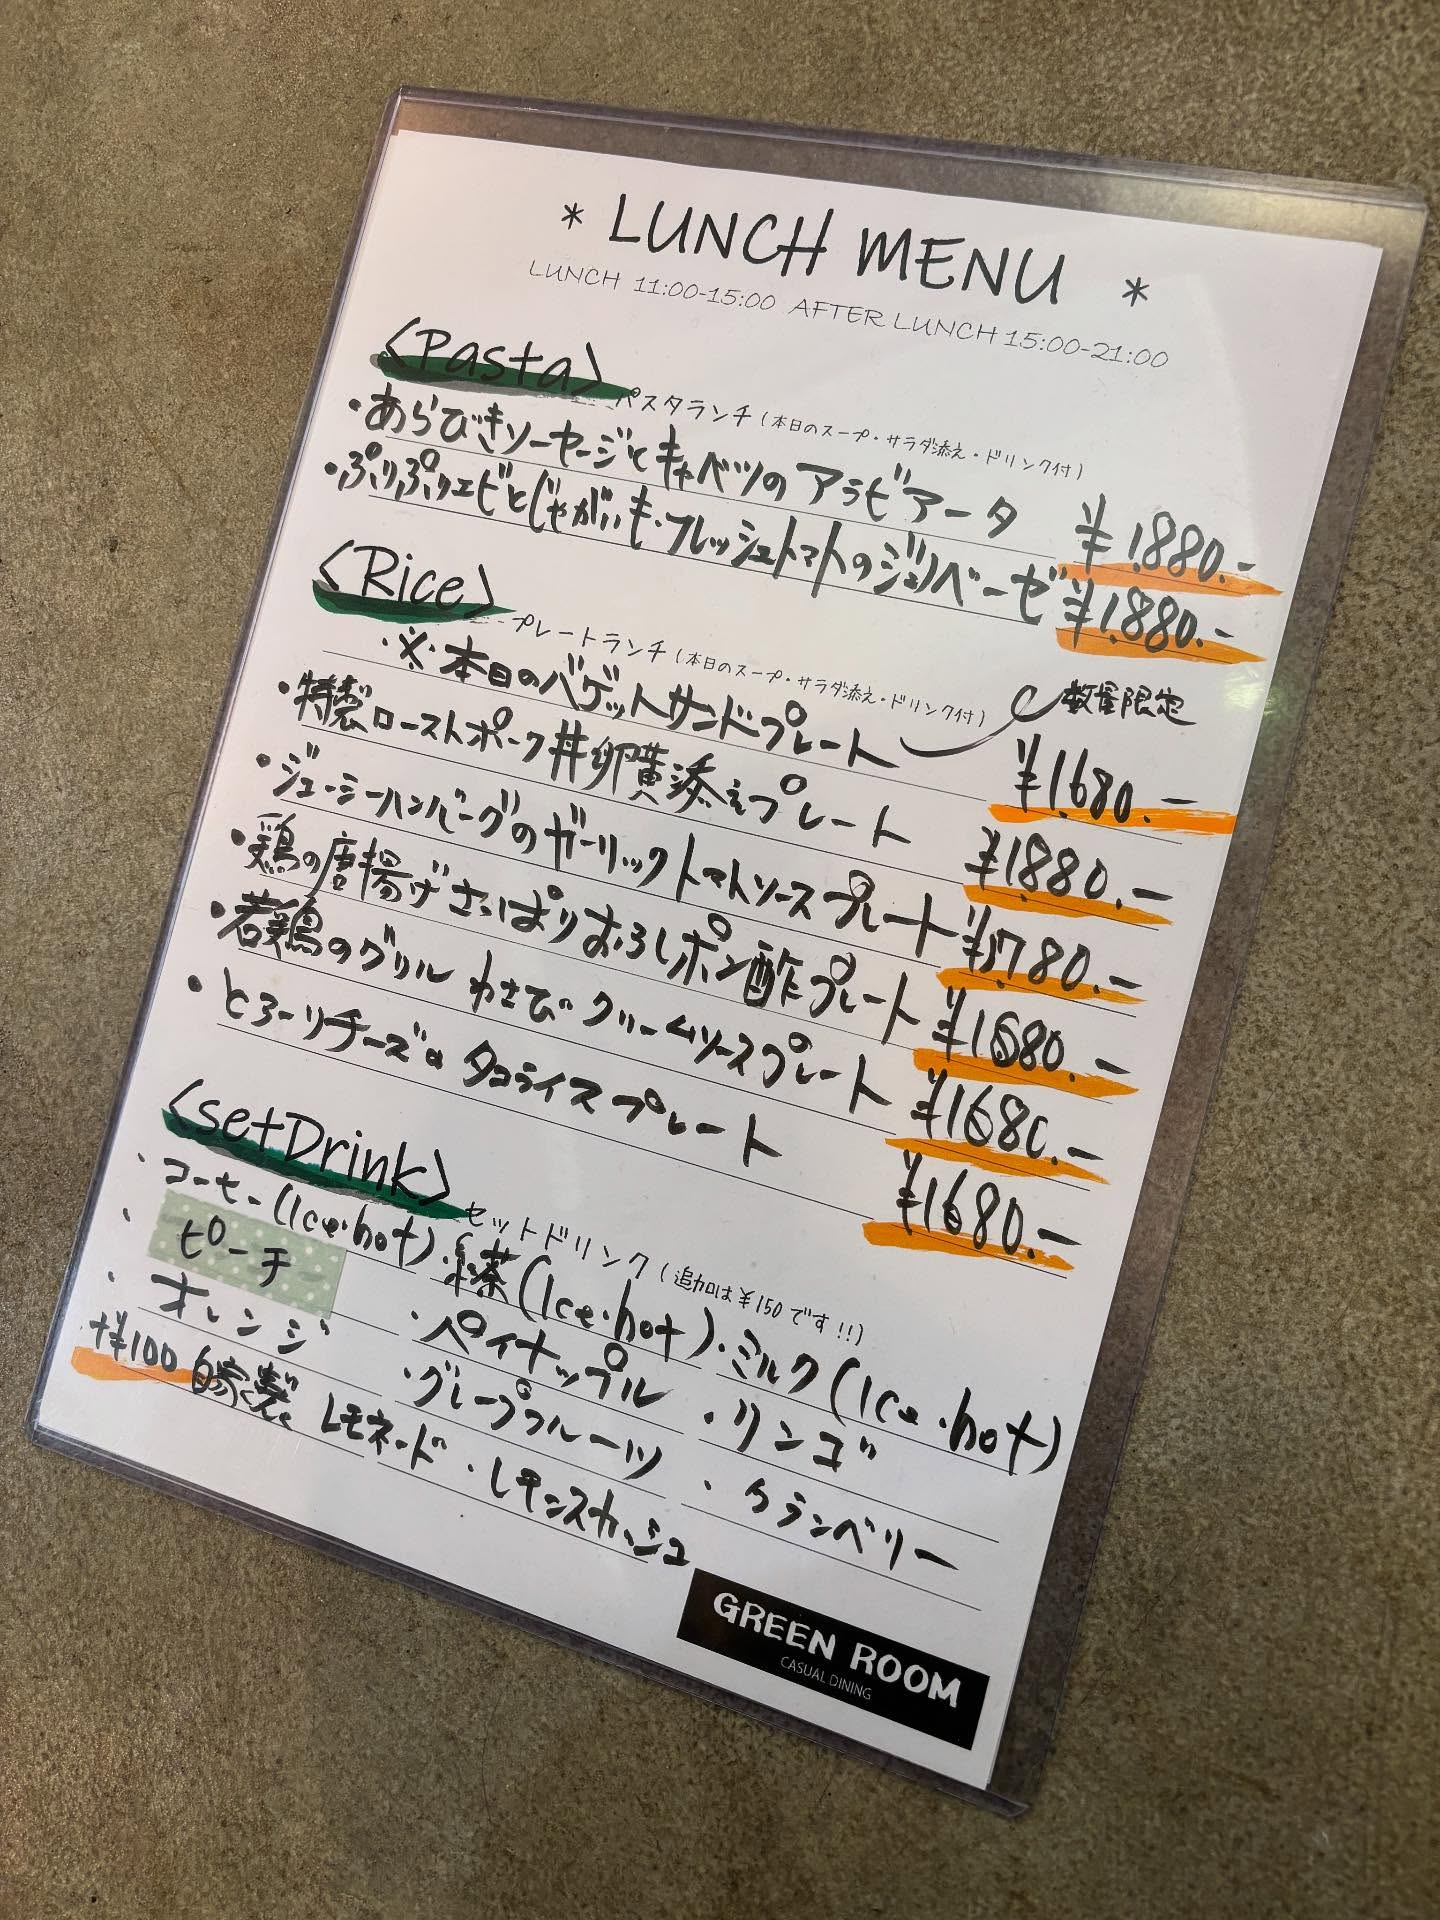 * LUNCH MENU *
LUNCH 11:00-15:00 AFTER LUNCH 15:00-21:00
<Pasta> パスタランチ(本日のスープ・サラダ添え・ドリンク付)
・あらびきソーセージとキャベツのアラビアータ ¥1,880.-
・ぷりぷりエビとじゃがいも・フレッシュトマトのジェノベーゼ ¥1,880.-
<Rice> プレートランチ(本日のスープ・サラダ添え・ドリンク付)
・※・本日のバゲットサンドプレート 数量限定 ¥1,680.-
・特製ローストポーク丼卵黄添えプレート ¥1,880.-
・ジューシーハンバーグのガーリックトマトソースプレート ¥1,780.-
・鶏の唐揚げさっぱりおろしポン酢プレート ¥1,680.-
・若鶏のグリルわさびクリームソースプレート ¥1,680.-
・とろーりチーズのタコライスプレート ¥1,680.-
<setDrink> セットドリンク(追加は¥150です!!)
・コーヒー(Ice・hot)・紅茶(Ice・hot)・ミルク(Ice・hot)
・ピーチ ・パイナップル ・リンゴ
・オレンジ ・グレープフルーツ ・クランベリー
+¥100 自家製 レモネード ・レモンスカッシュ
GREEN ROOM
CASUAL DINING